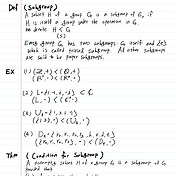 Def (Subgroup)
A subset H of a group G is a subgroup of G, if
H is itself a group under the operation in G.
We denote H < G
(≤)
Every group G has two subgroups: G itself and {e}
which is called trivial subgroup. All other subgroups
are said to be proper subgroups.
Ex (1) (Z, +) < (Q, +)
(2) L = {1, -1, i, -i} < C
(3) U₈ = {1, 3, 5, 7}
(4) D₄ =
Thm (Condition for Subgroup)
A nonempty subset H of a group G is a subgroup of G
provided that